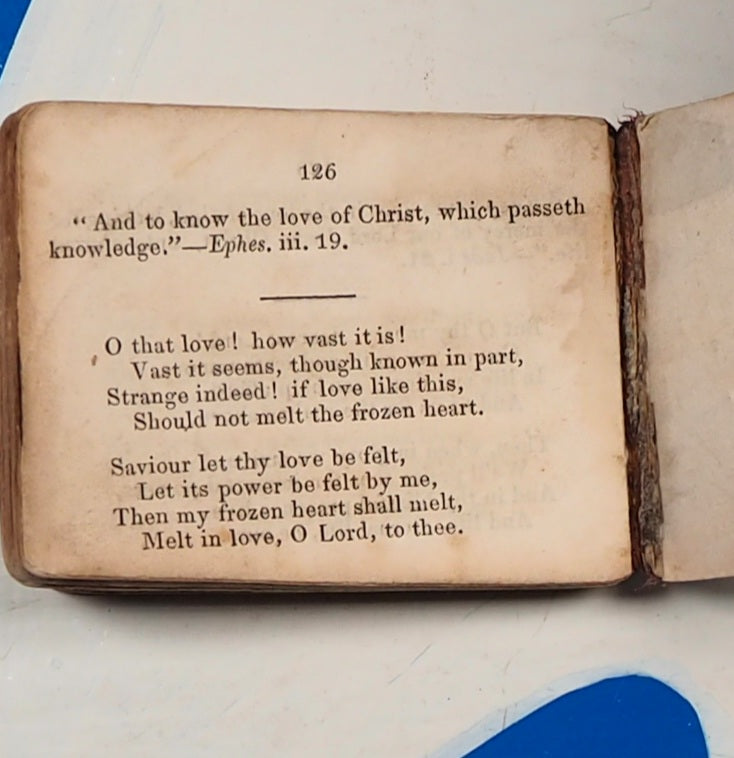 126
“ And to know the love of Christ, which passeth
knowledge.”—Ephes. iii. 19.
O that love! how vast it is!
Vast it seems, though known in part,
Strange indeed! if love like this,
Should not melt the frozen heart.
Saviour let thy love be felt,
Let its power be felt by me,
Then my frozen heart shall melt,
Melt in love, O Lord, to thee.